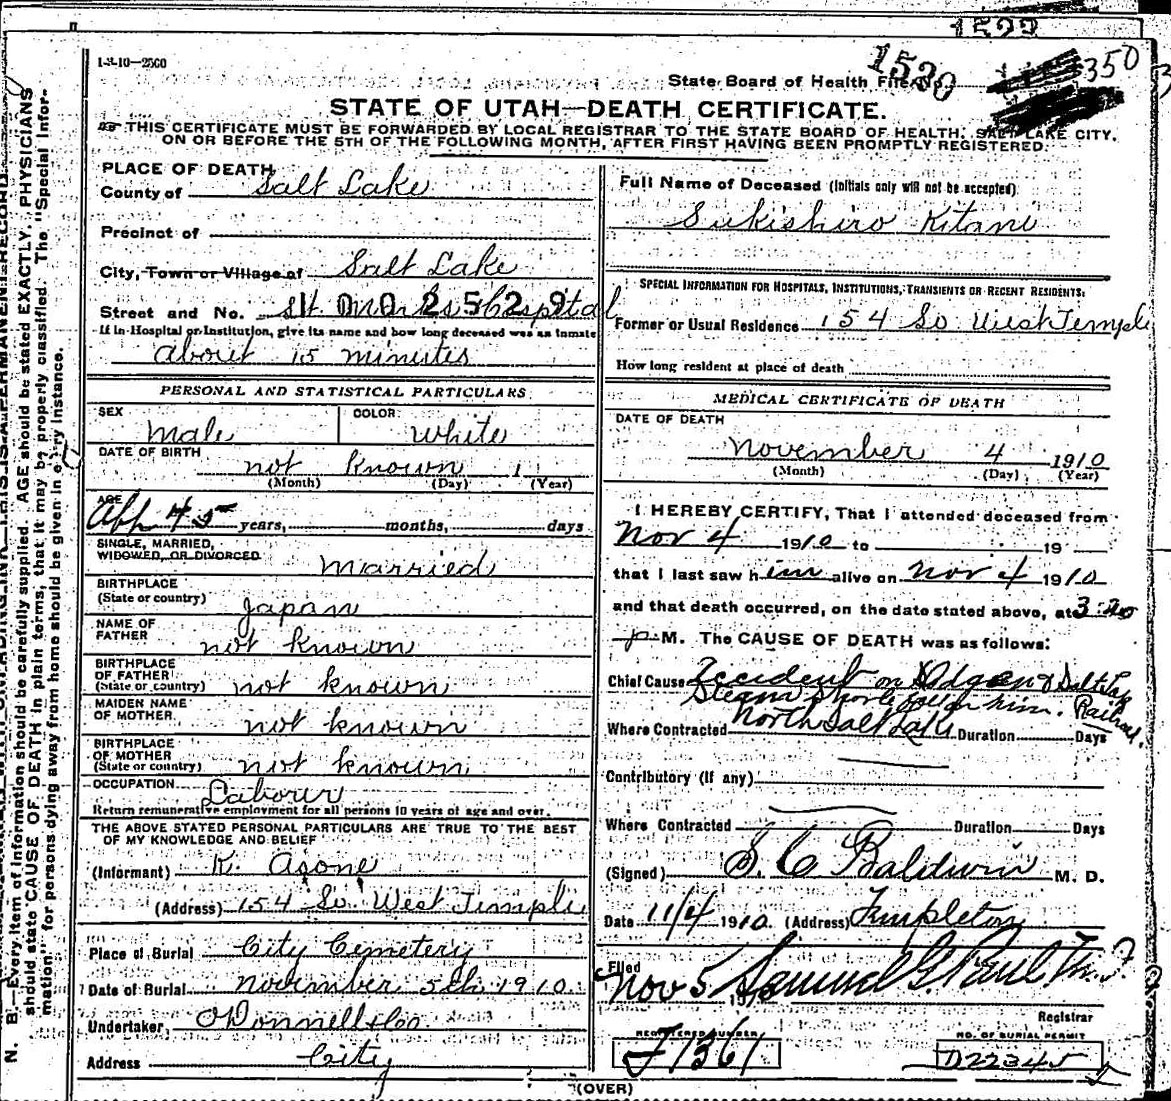 1523
1-3-10—2500
State Board of Health File No. 1530 350
STATE OF UTAH—DEATH CERTIFICATE.
THIS CERTIFICATE MUST BE FORWARDED BY LOCAL REGISTRAR TO THE STATE BOARD OF HEALTH, SALT LAKE CITY,
ON OR BEFORE THE 5TH OF THE FOLLOWING MONTH, AFTER FIRST HAVING BEEN PROMPTLY REGISTERED.
PLACE OF DEATH
County of Salt Lake
Precinct of
City, Town or Village of Salt Lake
Street and No. St Marks Hospital
If in Hospital or Institution, give its name and how long deceased was an inmate
about 15 minutes
PERSONAL AND STATISTICAL PARTICULARS
SEX Male COLOR White
DATE OF BIRTH not known 1
(Month) (Day) (Year)
AGE App 45 years, months, days
SINGLE, MARRIED,
WIDOWED, OR DIVORCED married
BIRTHPLACE
(State or country) Japan
NAME OF
FATHER not known
BIRTHPLACE
OF FATHER
(State or country) not known
MAIDEN NAME
OF MOTHER not known
BIRTHPLACE
OF MOTHER
(State or country) not known
OCCUPATION Labourer
Return remunerative employment for all persons 10 years of age and over.
THE ABOVE STATED PERSONAL PARTICULARS ARE TRUE TO THE BEST
OF MY KNOWLEDGE AND BELIEF
(Informant) K. Asone
(Address) 154 So West Temple
Place of Burial City Cemetery
Date of Burial November 5th 1910
Undertaker, O'Donnell & Co
Address City
Full Name of Deceased (Initials only will not be accepted)
Sukishiro Kitani
SPECIAL INFORMATION FOR HOSPITALS, INSTITUTIONS, TRANSIENTS OR RECENT RESIDENTS:
Former or Usual Residence 154 So West Temple
How long resident at place of death
MEDICAL CERTIFICATE OF DEATH
DATE OF DEATH
November 4 1910
(Month) (Day) (Year)
I HEREBY CERTIFY, That I attended deceased from
Nov 4 1910 to 19
that I last saw him alive on Nov 4 1910
and that death occurred, on the date stated above, at 3:20
p M. The CAUSE OF DEATH was as follows:
Chief Cause Accident on Ogden & Salt Lake
Steam fell on him. Railroad.
Where Contracted North Salt Lake Duration Days
Contributory (if any)
Where Contracted Duration Days
(Signed) S. C. Baldwin M. D.
Date 11/4 1910 (Address) Templeton
Filed
Nov 5 1910 Samuel G. Paul M.D.
Registrar
REGISTERED NUMBER
J1361
NO. OF BURIAL PERMIT
D22345
(OVER)
N. B.—Every item of information should be carefully supplied. AGE should be stated EXACTLY. PHYSICIANS
should state CAUSE OF DEATH in plain terms, that it may be properly classified. The "Special Infor-
mation" for persons dying away from home should be given in every instance.